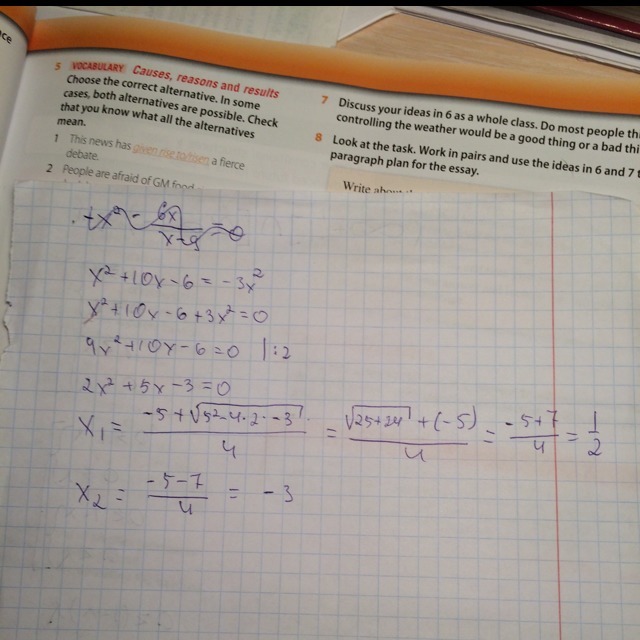 ce
5 VOCABULARY Causes, reasons and results
Choose the correct alternative. In some
cases, both alternatives are possible. Check
that you know what all the alternatives
mean.
1 This news has given rise to/risen a fierce
debate.
2 People are afraid of GM food
7 Discuss your ideas in 6 as a whole class. Do most people thi
controlling the weather would be a good thing or a bad thi
8 Look at the task. Work in pairs and use the ideas in 6 and 7 t
paragraph plan for the essay.
Write about
x² + 10x - 6 = -3x²
x² + 10x - 6 + 3x² = 0
4x² + 10x - 6 = 0 | :2
2x² + 5x - 3 = 0
x₁ = (-5 + √(5² - 4·2·-3))/4 = (√(25+24) + (-5))/4 = (-5+7)/4 = 1/2
x₂ = (-5-7)/4 = -3